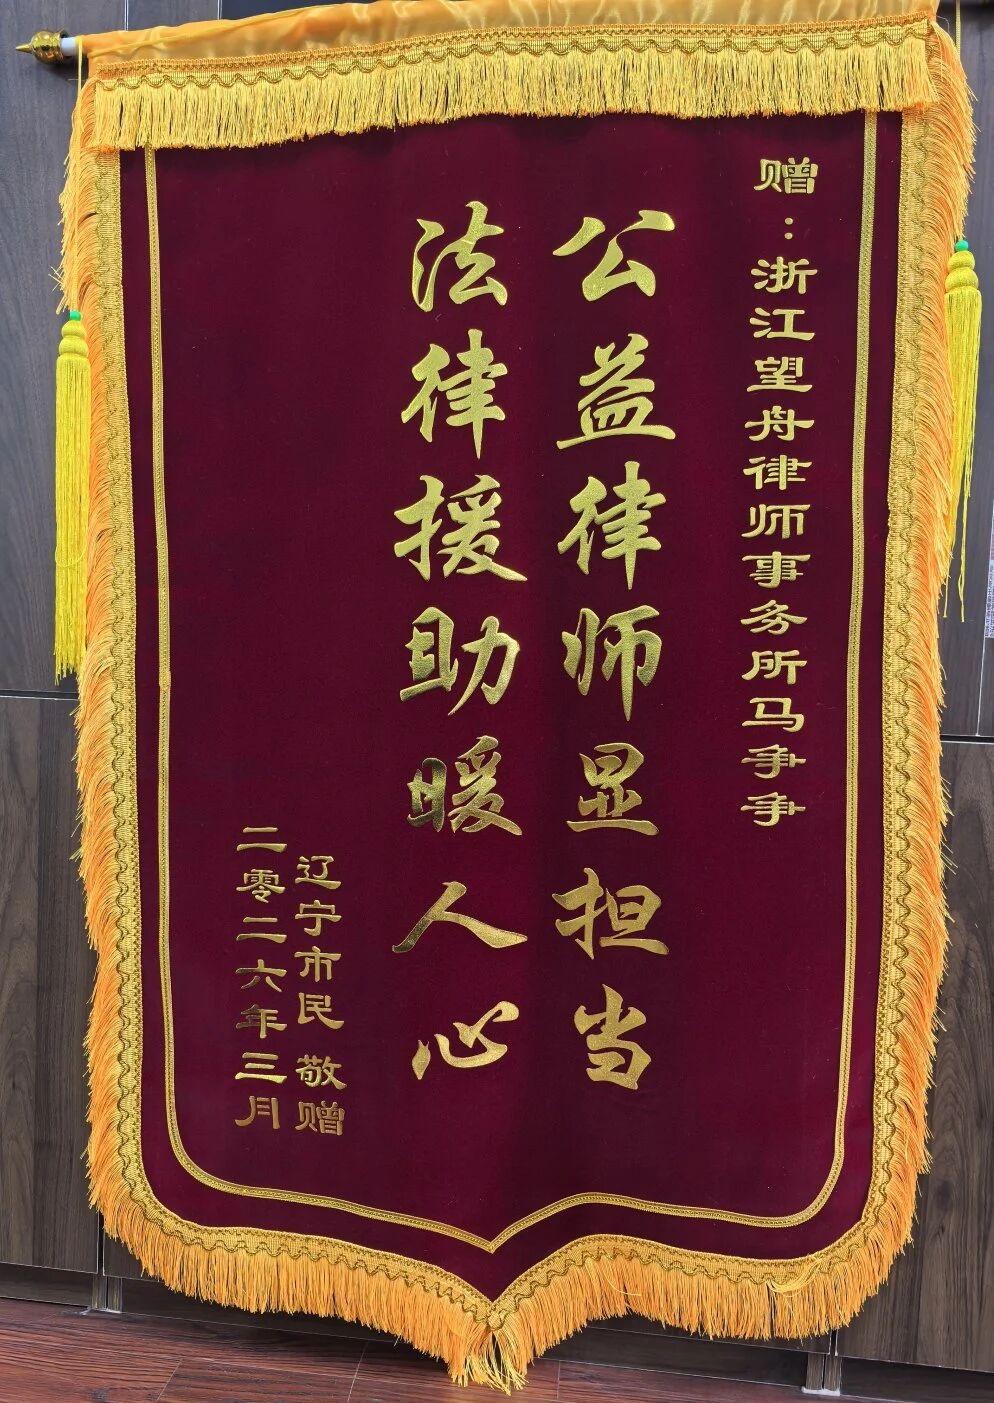 赠：浙江望舟律师事务所马争争
公益律师显担当
法律援助暖人心
辽宁市民 敬赠
二零二六年三月